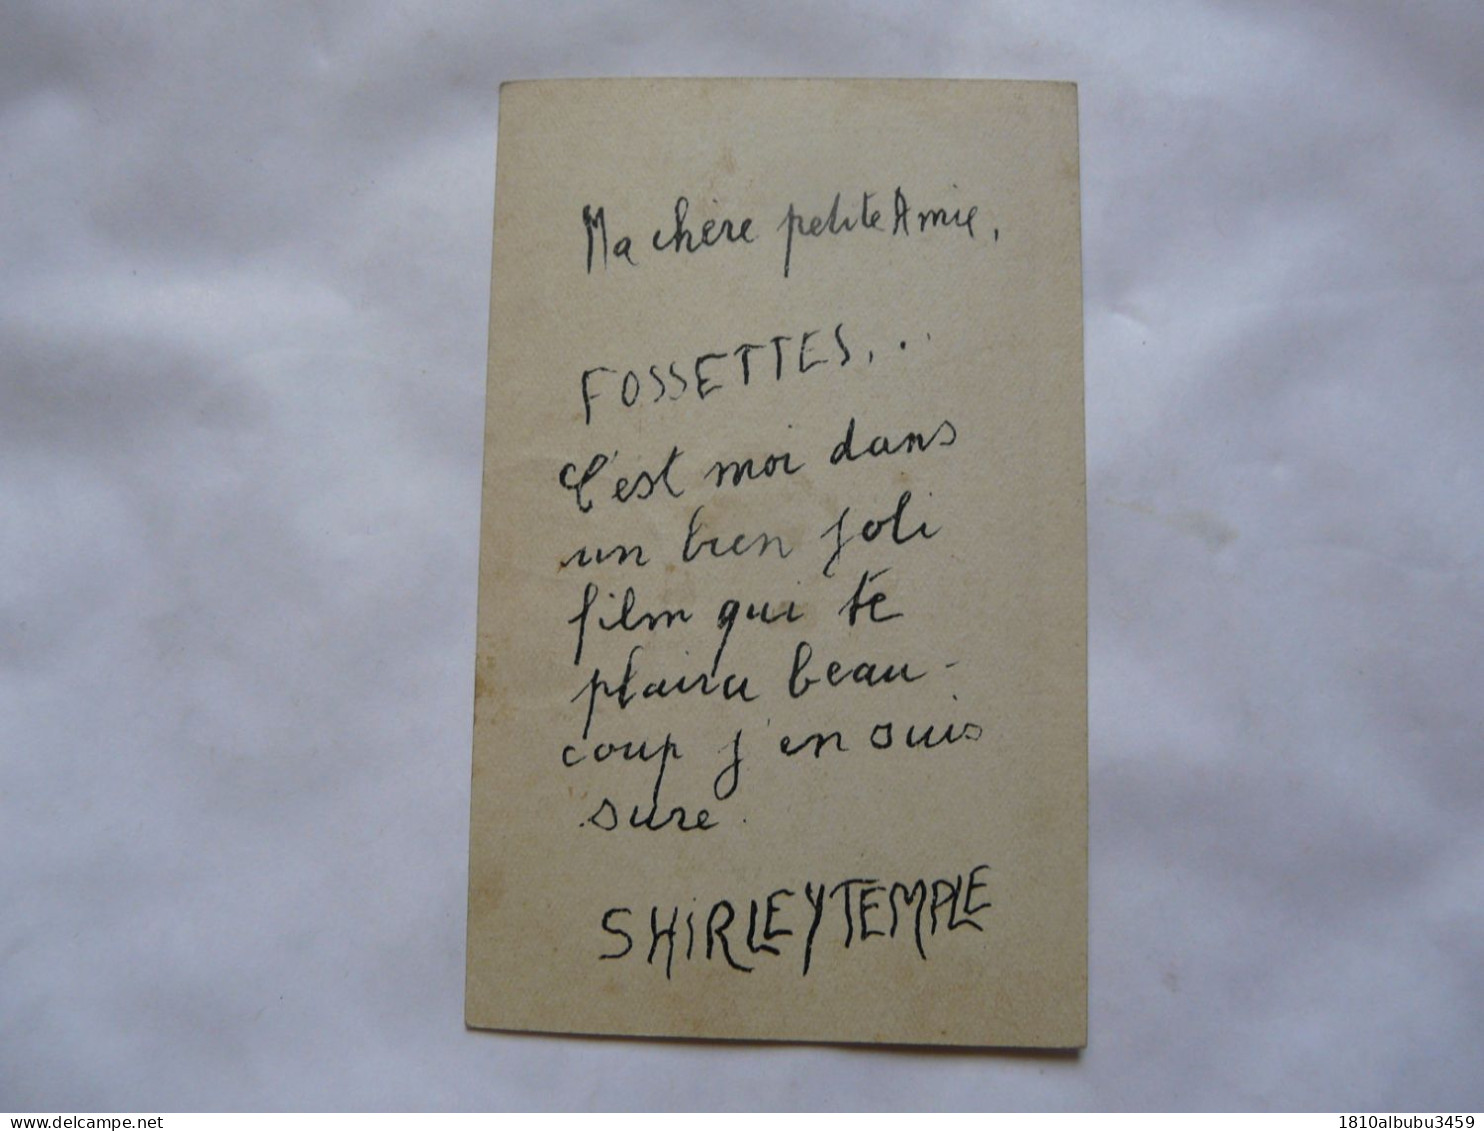 Ma chère petite Amie,
FOSSETTES...
C'est moi dans
un bien joli
film qui te
plaira beau-
coup j'en suis
sure.
SHiRLEY TEMPLE
delcampe.net
1810albubu3459